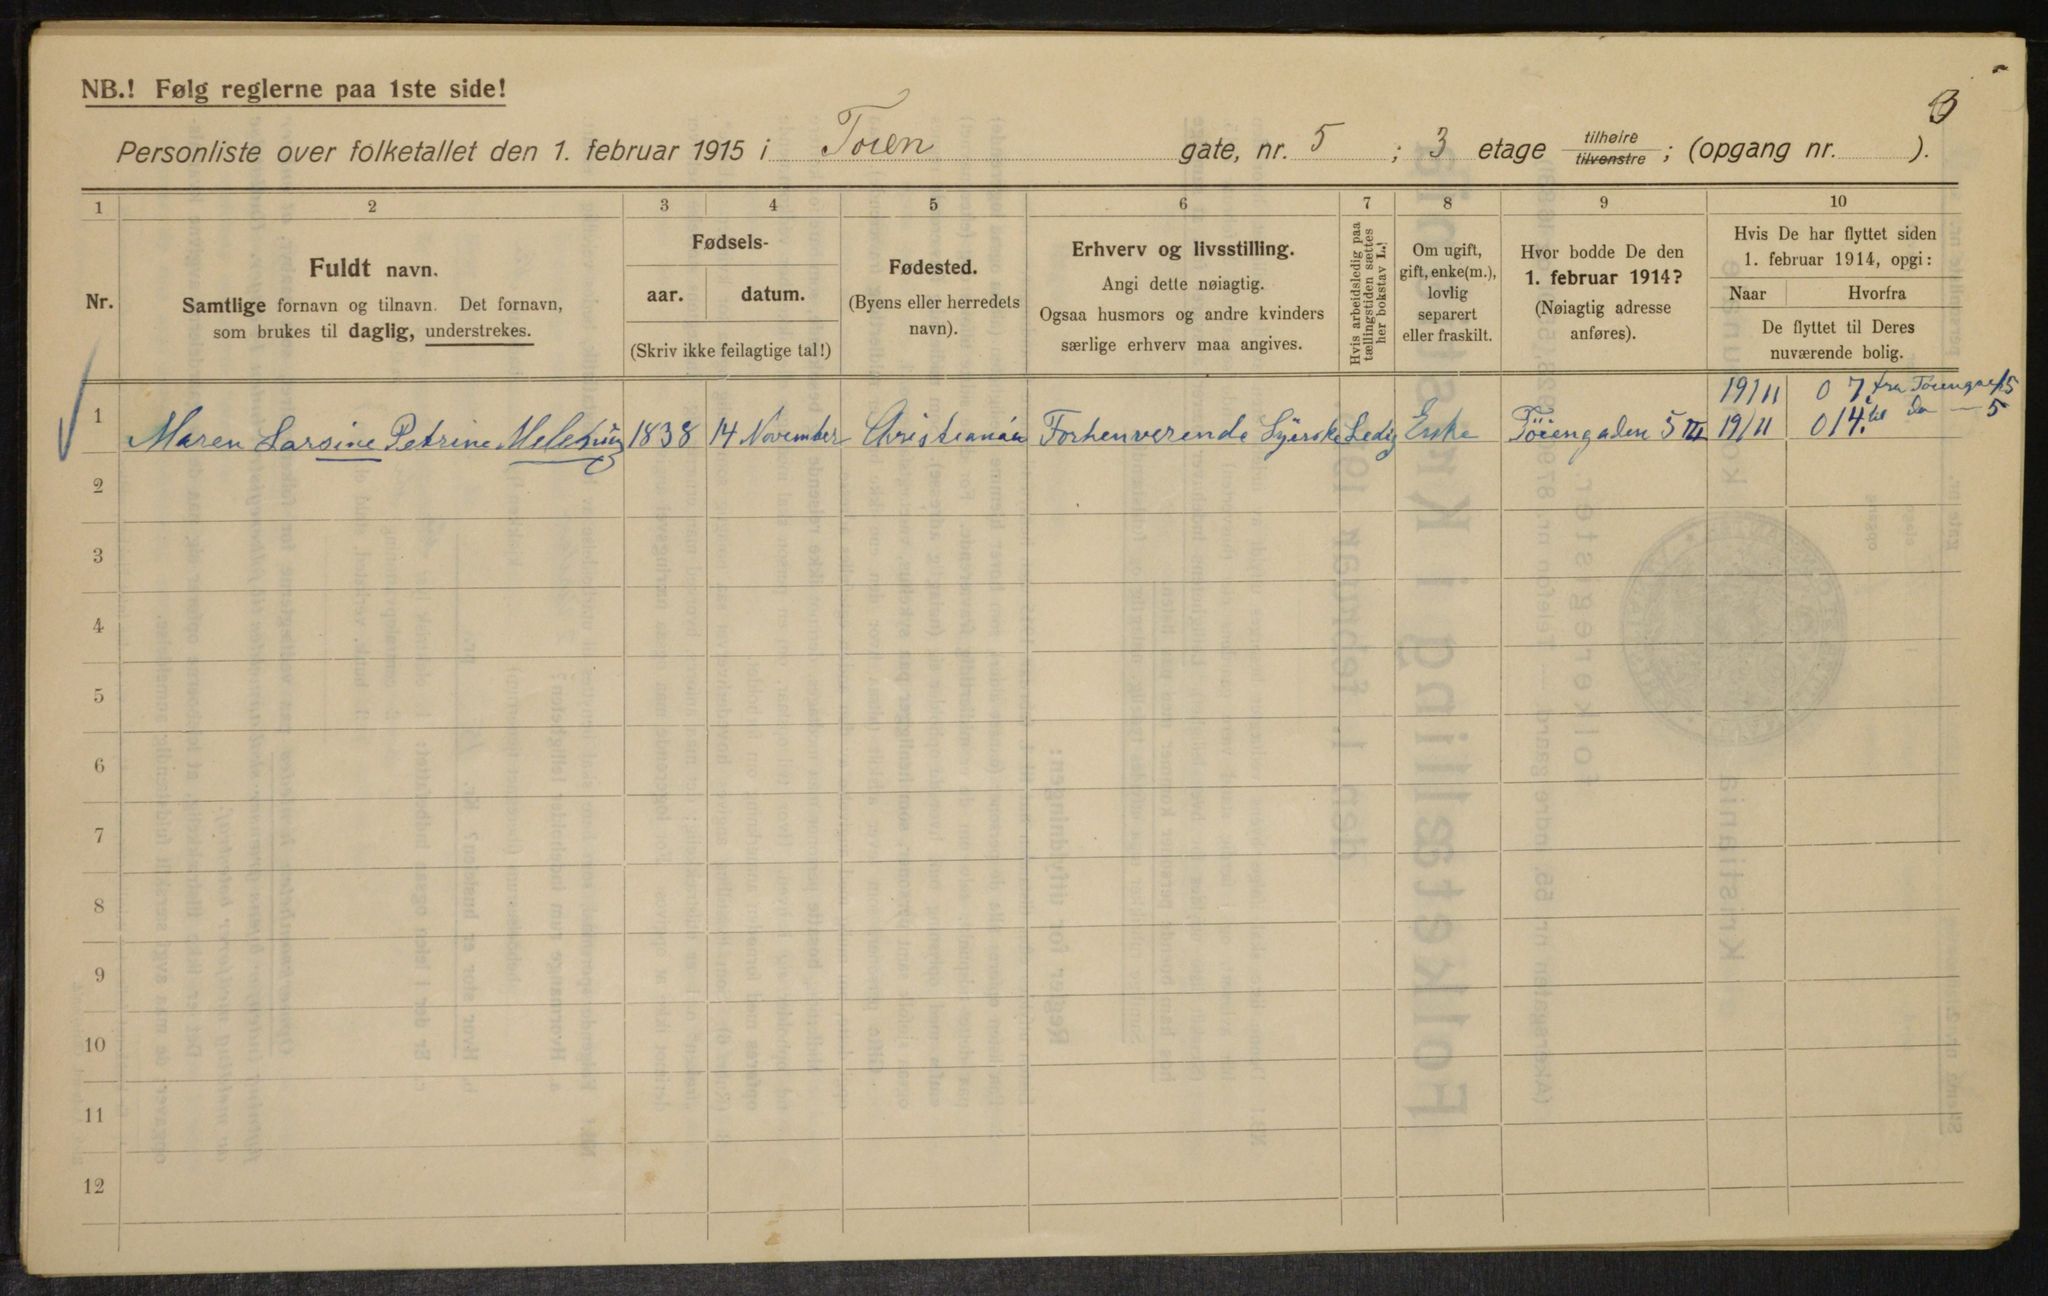 NB.! Følg reglerne paa 1ste side!
3
Personliste over folketallet den 1. februar 1915 i Töien gate, nr. 5 ; 3 etage tilhøire tilvenstre ; (opgang nr. ).
1 2 3 4 5 6 7 8 9 10
Nr.
Fuldt navn.
Samtlige fornavn og tilnavn. Det fornavn,
som brukes til daglig, understrekes.
Fødsels-
aar. datum.
(Skriv ikke feilagtige tal!)
Fødested.
(Byens eller herredets
navn).
Erhverv og livsstilling.
Angi dette nøiagtig.
Ogsaa husmors og andre kvinders
særlige erhverv maa angives.
Hvis arbeidsledig paa
tællingstiden sættes
her bokstav L.!
Om ugift,
gift, enke(m.),
lovlig
separert
eller fraskilt.
Hvor bodde De den
1. februar 1914?
(Nøiagtig adresse
anføres).
Hvis De har flyttet siden
1. februar 1914, opgi:
Naar Hvorfra
De flyttet til Deres
nuværende bolig.
19/11 07. fra Töiengad 5
1 Maren Larsine Petrine 1838 14 November Christiania Forhenverende Syerske Ledig Enke Töiengaden 5 III 19/11 014. til Do — 5
2
3
4
5
6
7
8
9
10
11
12